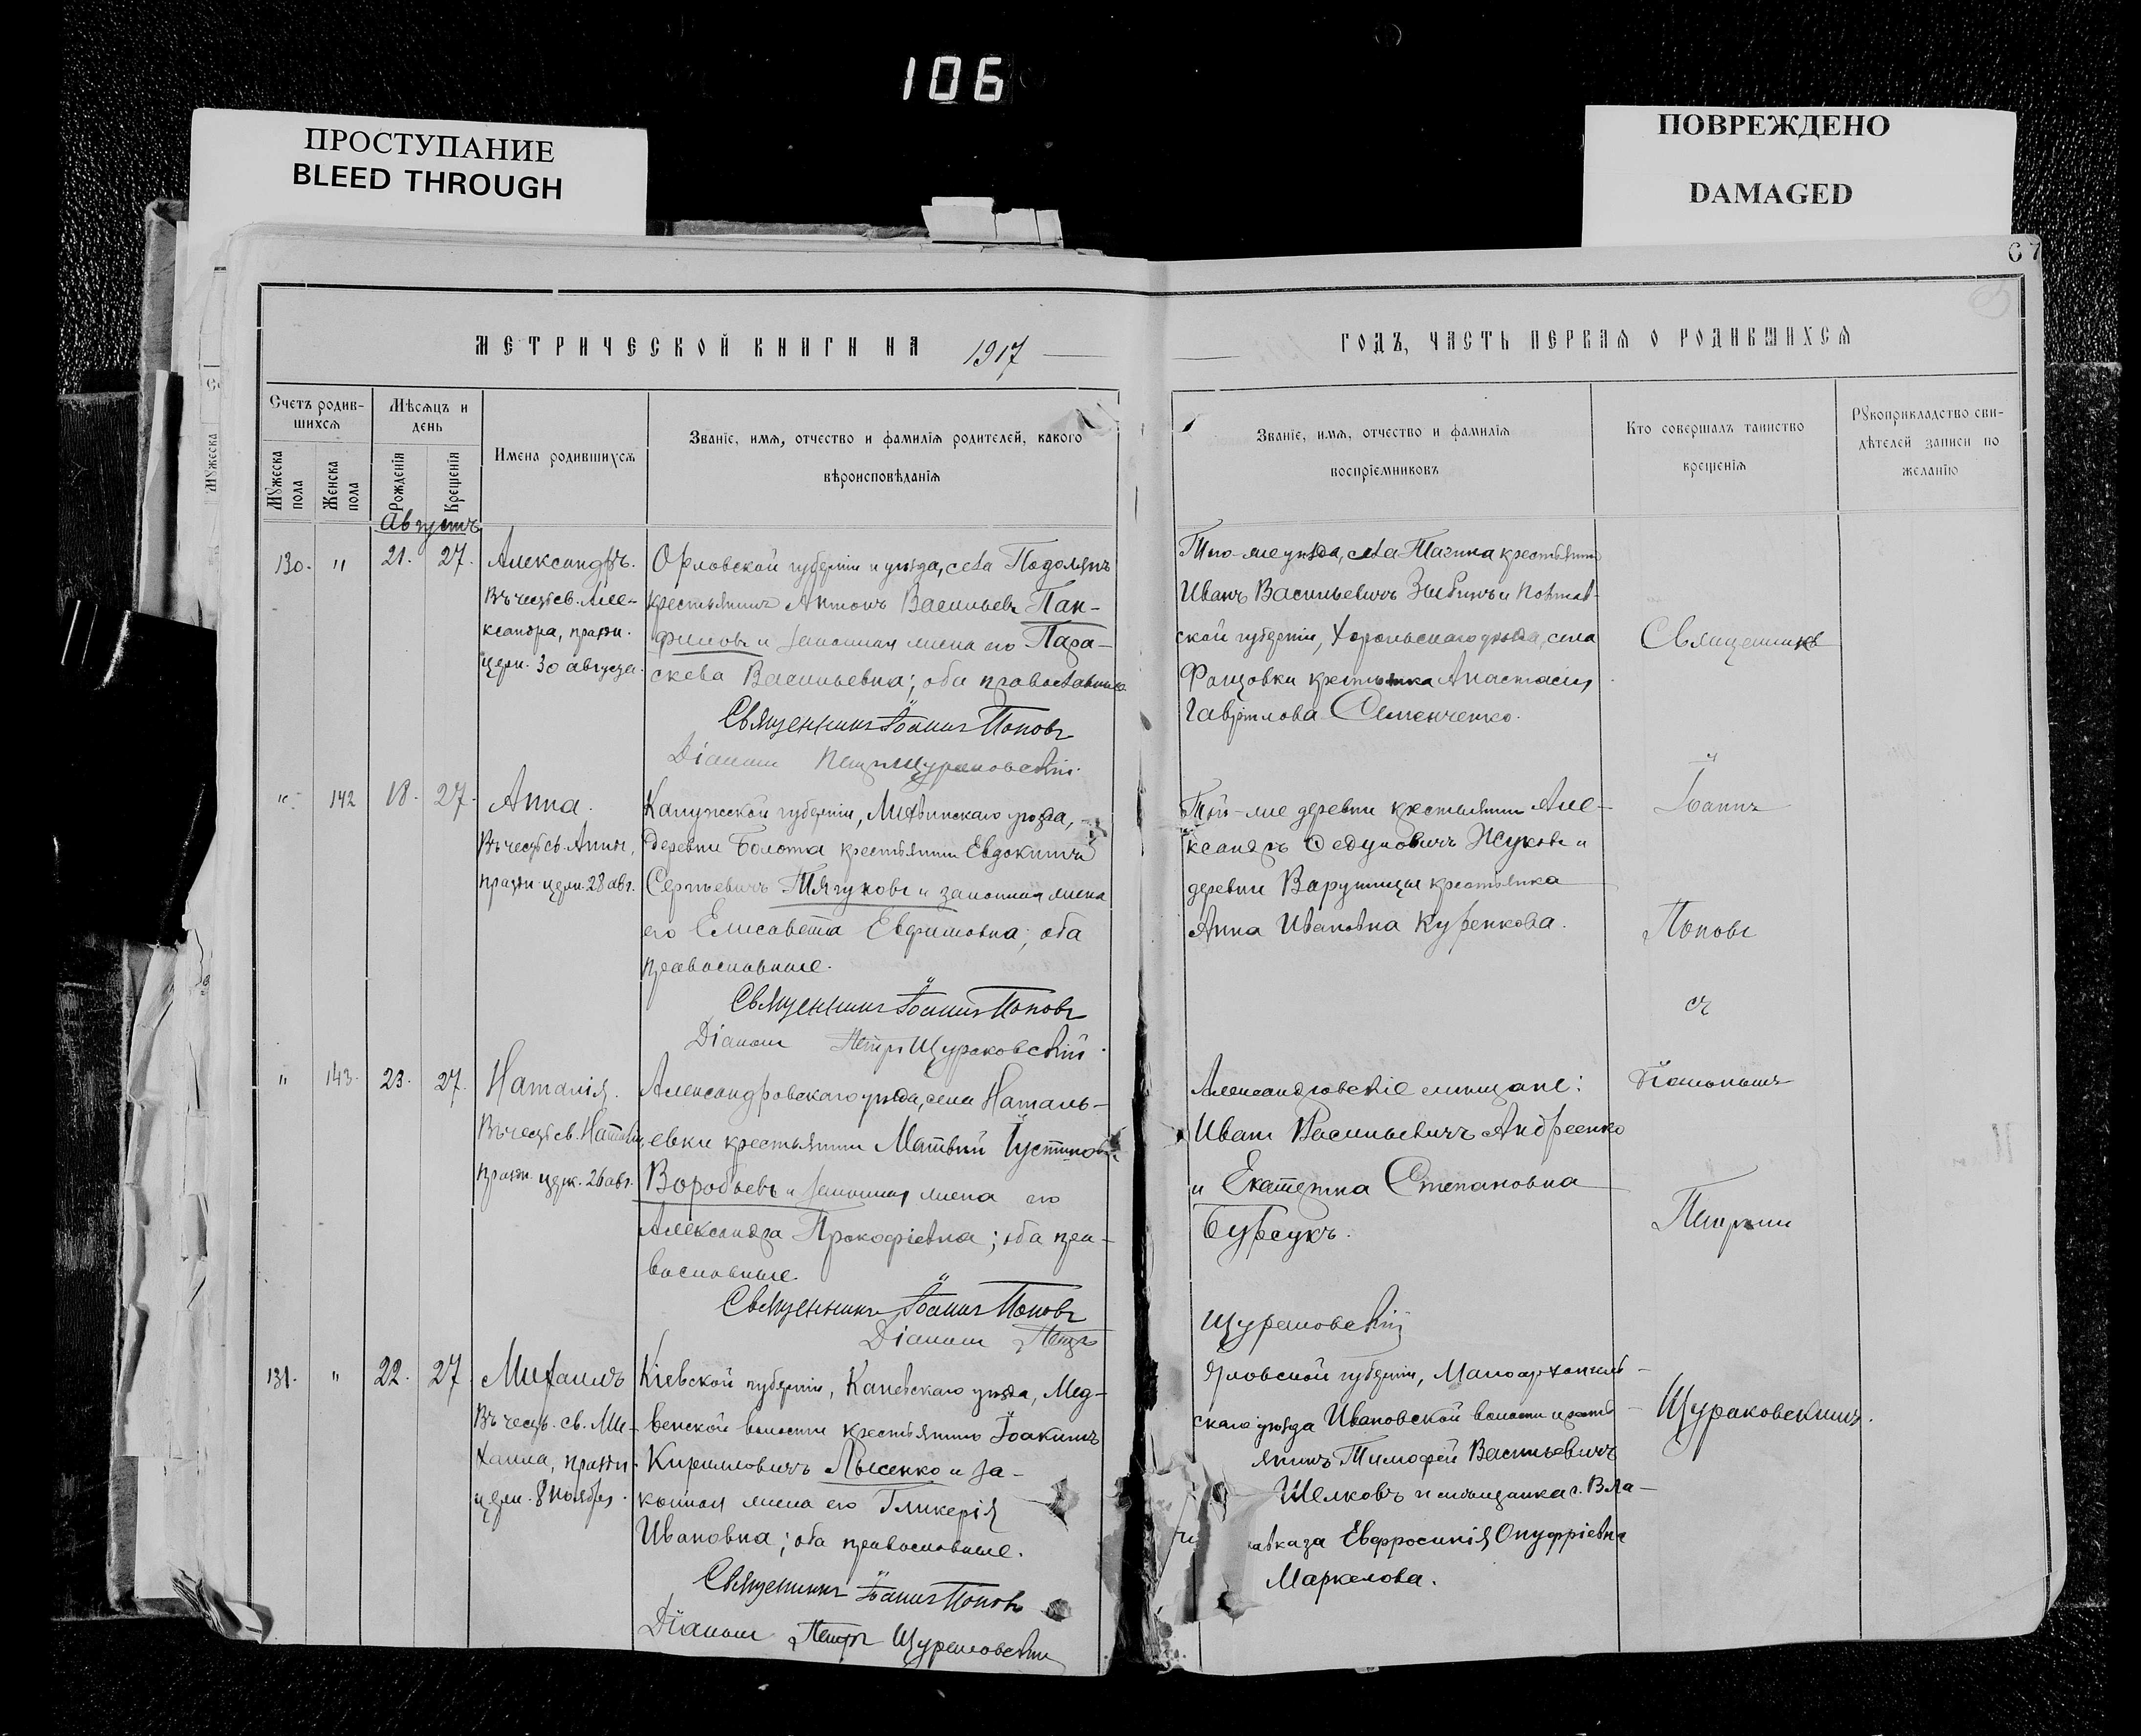 106
ПРОСТУПАНИЕ
BLEED THROUGH
ПОВРЕЖДЕНО
DAMAGED
67
МЕТРИЧЕСКОЙ КНИГИ НА 1917
ГОДЪ, ЧАСТЬ ПЕРВАЯ О РОДИВШИХСЯ
Счетъ родив-
шихся
Мужеска пола
Женска пола
Мѣсяцъ и
день
Рожденія
Крещенія
Имена родившихся
Званіе, имя, отчество и фамилія родителей, какого
вѣроисповѣданія
Званіе, имя, отчество и фамилія
воспріемниковъ
Кто совершалъ таинство
крещенія
Рукоприкладство сви-
дѣтелей записи по
желанію
Мужеска
Августъ
130. " 21. 27.
Александръ.
Въ честь св. Але-
ксандра, празн.
церк. 30 августа.
Орловской губерніи и уѣзда, села Подолянъ
крестьянинъ Антонъ Васильевъ Пан-
филовъ и законная жена его Пара-
скева Васильевна; оба православные
Священникъ Іоаннъ Поповъ
Діаконъ Петръ Щураковскій.
Того-же уѣзда, села Тагина крестьянинъ
Иванъ Васильевичъ Зибинъ и Полтав-
ской губерніи, Хорольскаго уѣзда, села
крестьянка Анастасія
Гавріилова Семенченко.
" 142 18. 27.
Анна.
Въ честь св. Анны,
празн. церк. 28 авг.
Калужской губерніи, Лихвинскаго уѣзда,
деревни Болота крестьянинъ Евдокимъ
Сергѣевичъ Тягуновъ и законная жена
его Елисавета Евфимовна; оба
православные.
Священникъ Іоаннъ Поповъ
Діаконъ Петръ Щураковскій.
Той-же деревни крестьянинъ Але-
ксандръ Жуковъ и
деревни крестьянка
Анна Ивановна Куренкова.
" 143. 23. 27.
Наталія.
Въ честь св. Наталіи,
празн. церк. 26 авг.
Александровскаго уѣзда, села Наталь-
евки крестьянинъ Матвѣй Іустиновъ
Воробьевъ и законная жена его
Александра Прокофіевна; оба пра-
вославные.
Священникъ Іоаннъ Поповъ
Діаконъ Петръ
Щураковскій
Александровскіе мѣщане:
Иванъ Васильевичъ Андреенко
и Екатерина Степановна
Бурсукъ.
131. " 22. 27.
Михаилъ
Въ честь св. Ми-
хаила, празн.
церк. 8 ноября.
Кіевской губерніи, Каневскаго уѣзда, Мед-
венской волости крестьянинъ Іоакимъ
Кирилловичъ Лысенко и за-
конная жена его Гликерія
Ивановна; оба православные.
Священникъ Іоаннъ Поповъ
Діаконъ Петръ Щураковскій
губерніи, Малоархангель-
скаго уѣзда Ивановской волости кресть-
янинъ Тимофей Васильевичъ
Шелковъ и мѣщанка г. Вла-
авказа Евфросинія Онуфріевна
Маркелова.
Священникъ
Іоаннъ
Поповъ
съ
Діакономъ
Петромъ
Щураковскимъ.